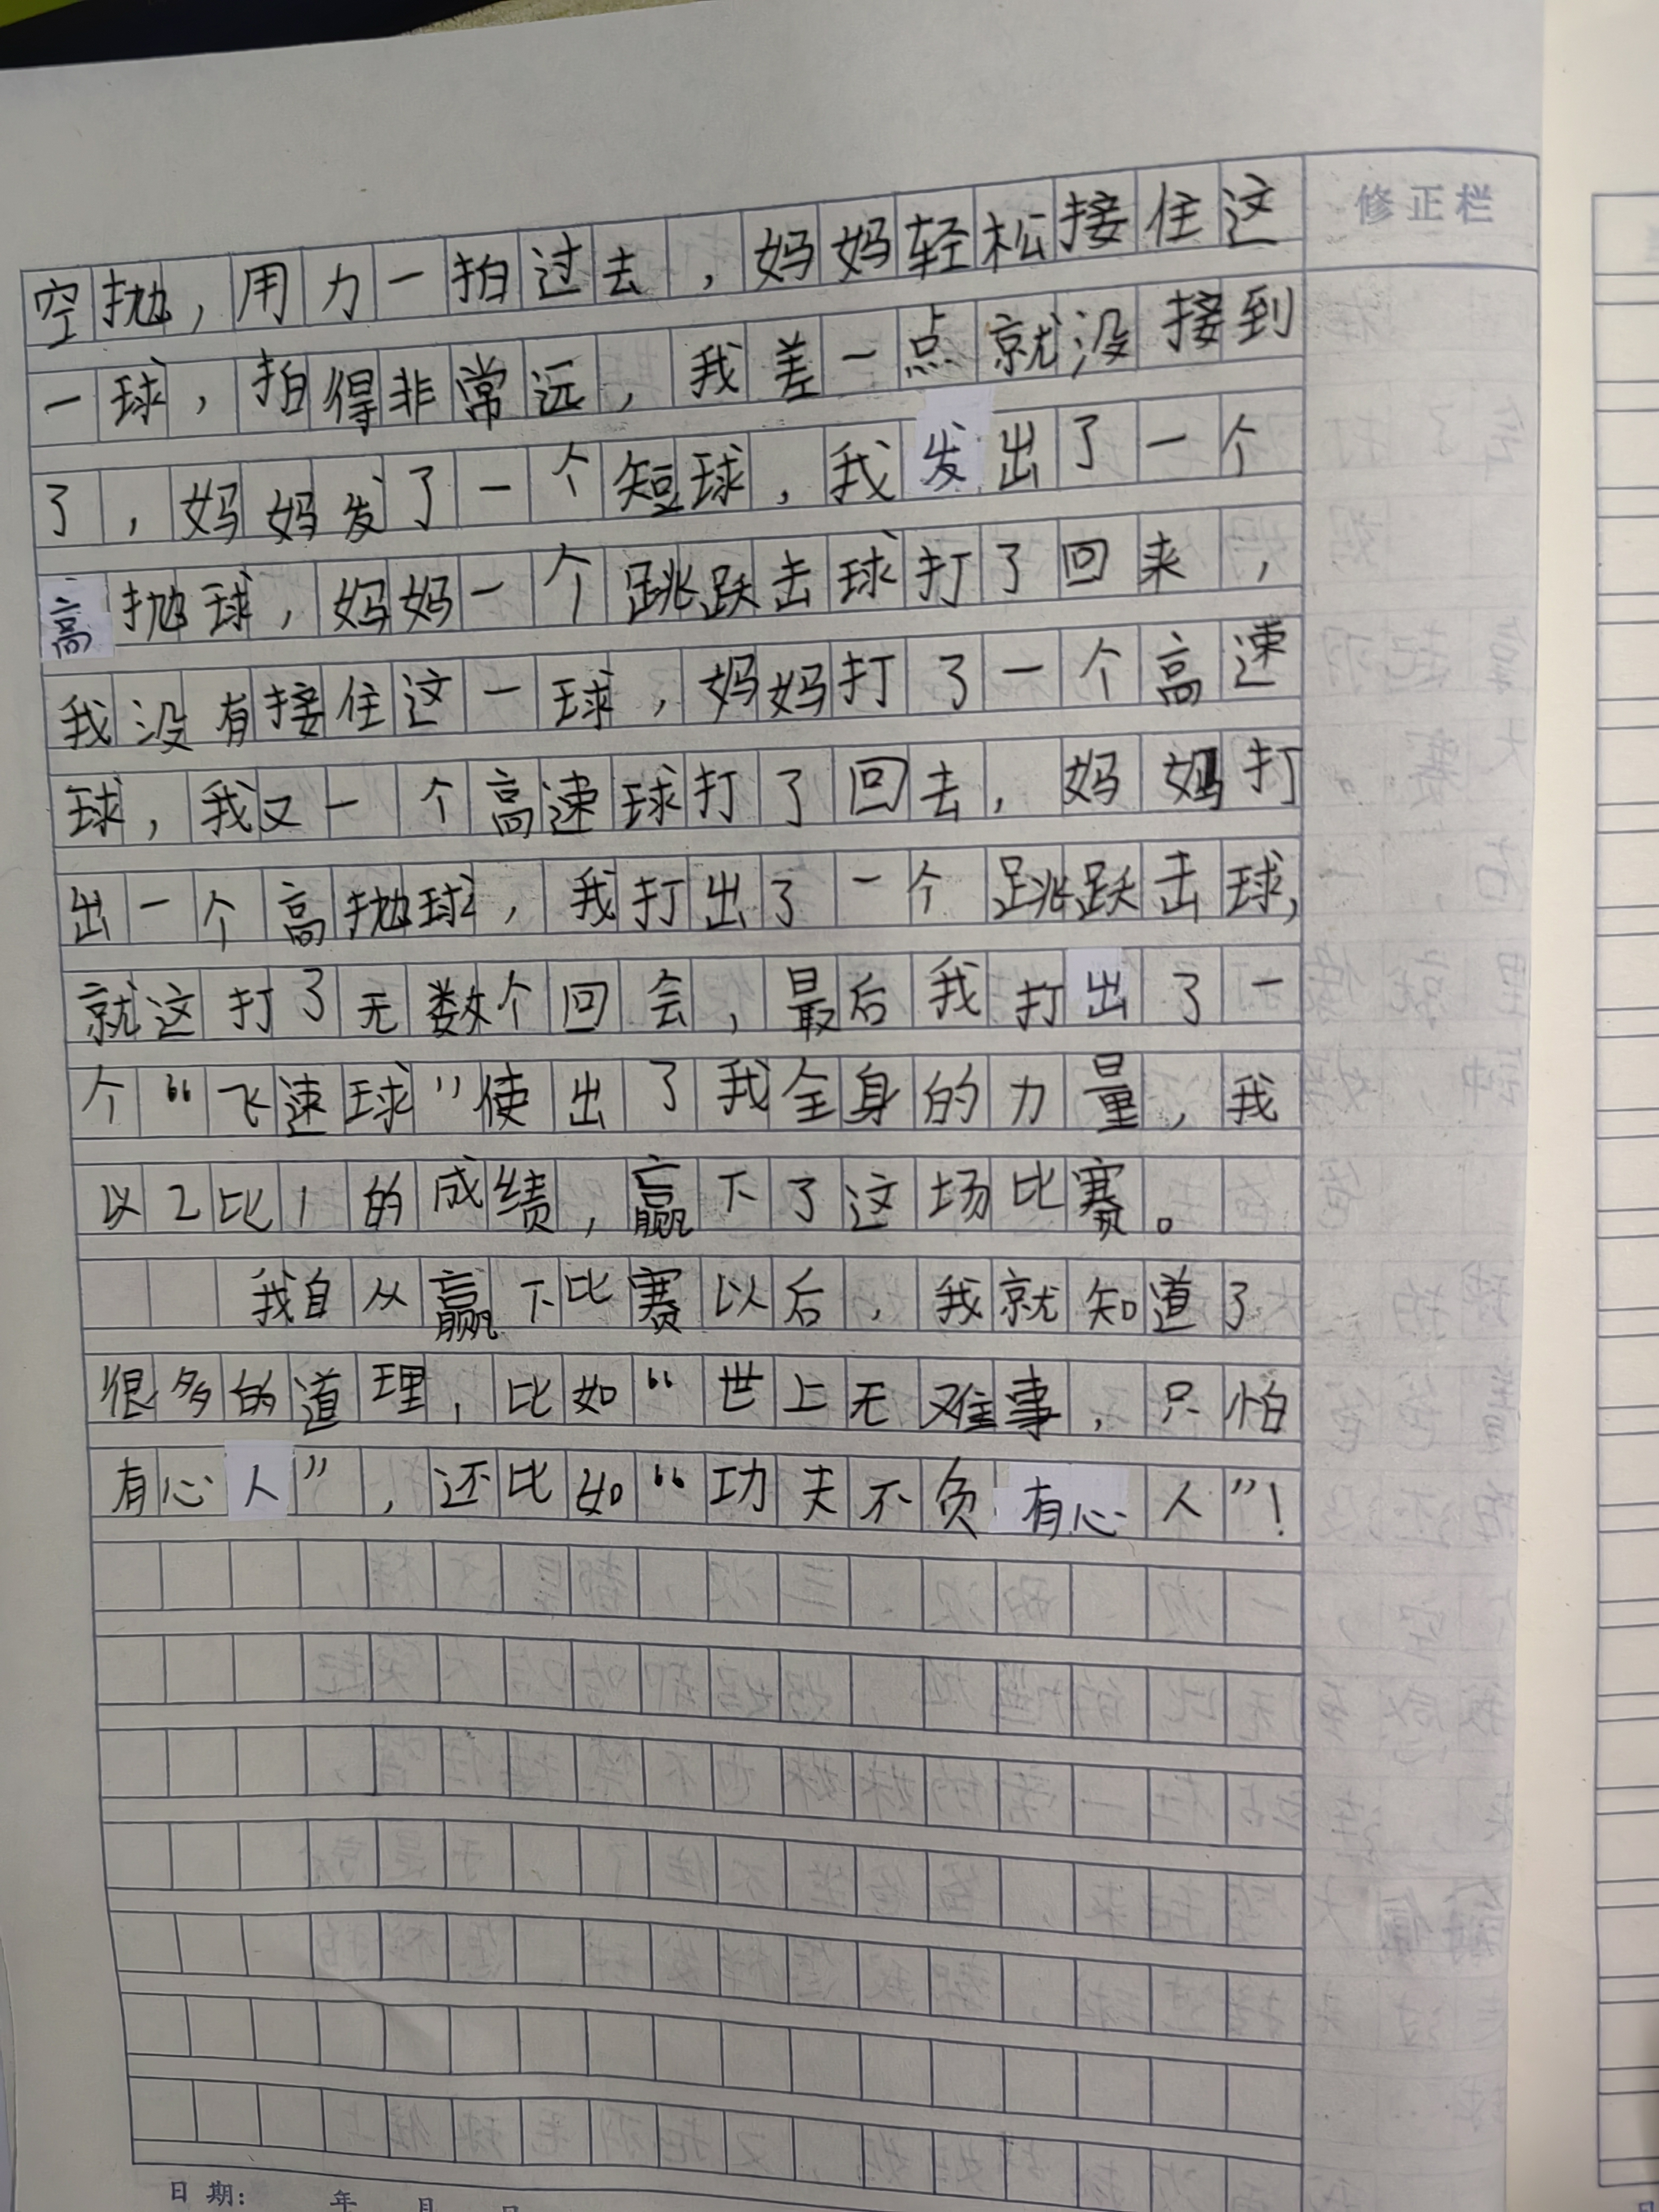 修正栏
空抛，用力一拍过去，妈妈轻松接住这
一球，拍得非常远，我差一点就没接到
了，妈妈发了一个短球，我发出了一个
高抛球，妈妈一个跳跃击球打了回来，
我没有接住这一球，妈妈打了一个高速
球，我又一个高速球打了回去，妈妈打
出一个高抛球，我打出了一个跳跃击球，
就这打了无数个回会，最后我打出了一
个“飞速球”使出了我全身的力量，我
以2比1的成绩，赢下了这场比赛。
我自从赢下比赛以后，我就知道了
很多的道理，比如“世上无难事，只怕
有心人”，还比如“功夫不负有心人”！
日期： 年 月 日